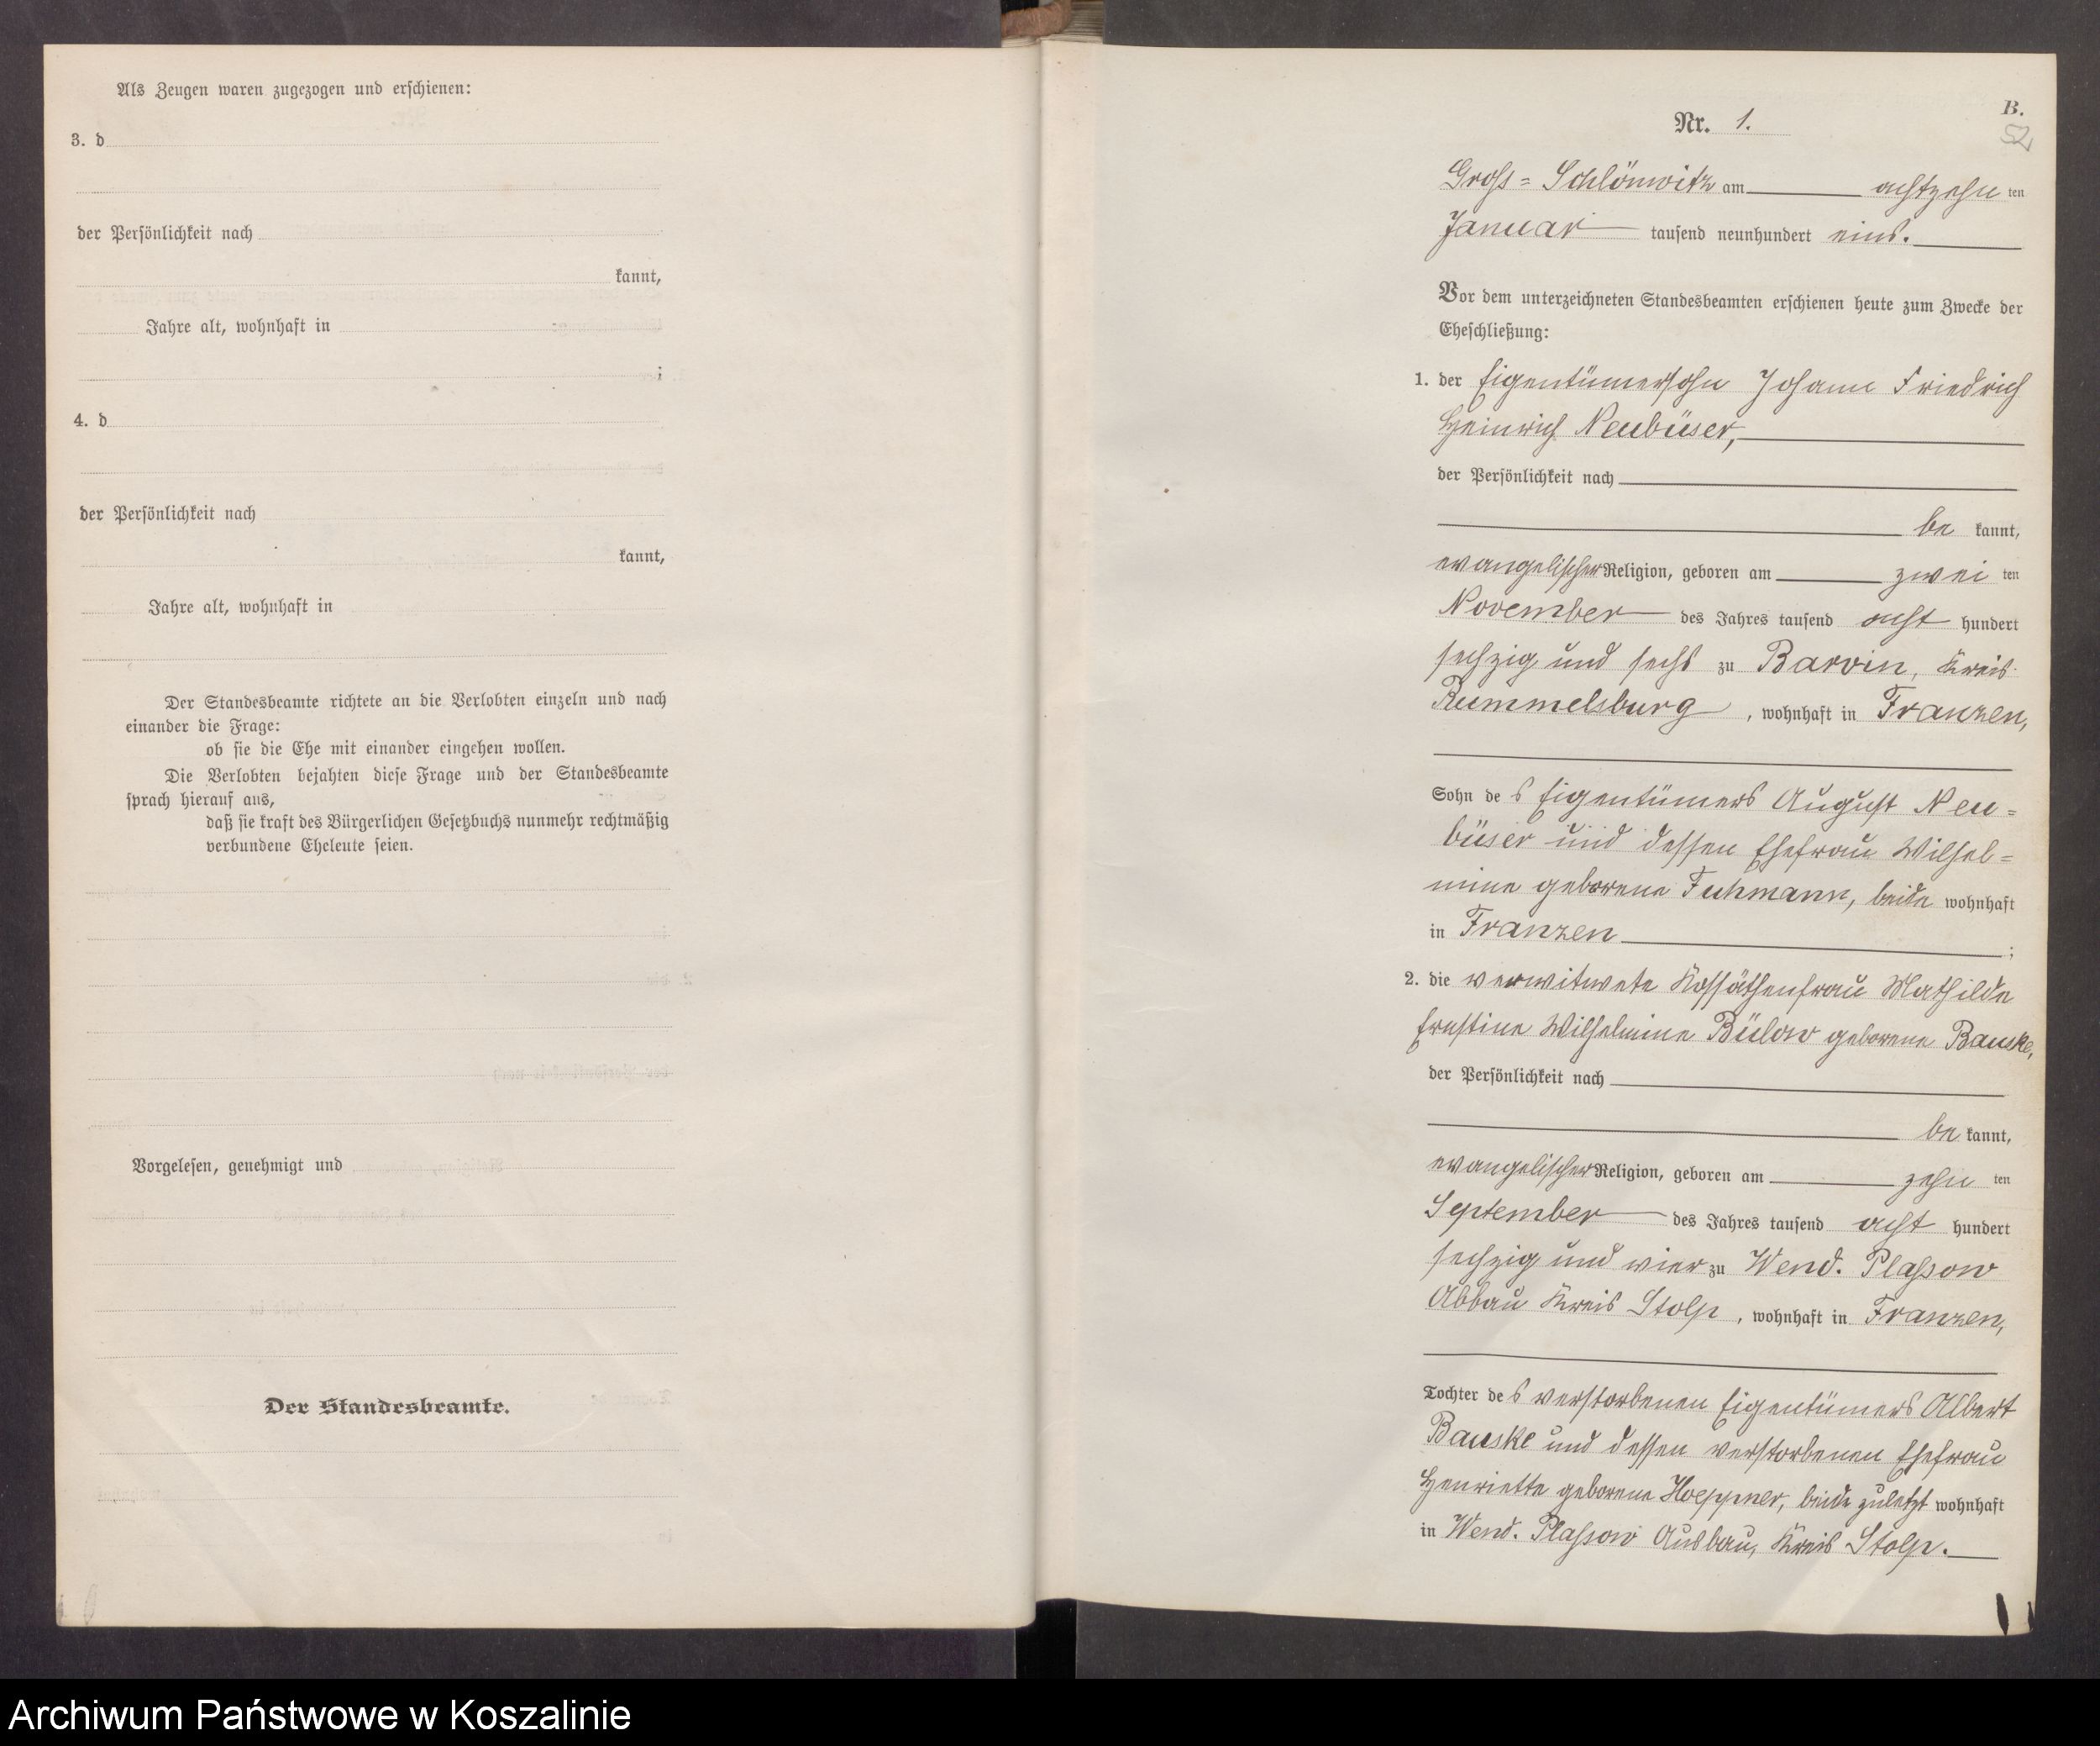 Als Zeugen waren zugezogen und erschienen:
3. d
der Persönlichkeit nach
kannt,
Jahre alt, wohnhaft in
;
4. d
der Persönlichkeit nach
kannt,
Jahre alt, wohnhaft in
Der Standesbeamte richtete an die Verlobten einzeln und nach
einander die Frage:
ob sie die Ehe mit einander eingehen wollen.
Die Verlobten bejahten diese Frage und der Standesbeamte
sprach hierauf aus,
daß sie kraft des Bürgerlichen Gesetzbuchs nunmehr rechtmäßig
verbundene Eheleute seien.
Vorgelesen, genehmigt und
Der Standesbeamte.
B.
52
Nr. 1.
Gross-Schlönwitz am achtzehn ten
Januar tausend neunhundert eins.
Vor dem unterzeichneten Standesbeamten erschienen heute zum Zwecke der
Eheschließung:
1. der Eigentümersohn Johann Friedrich
Heinrich Neubüser,
der Persönlichkeit nach
be kannt,
evangelischer Religion, geboren am zwei ten
November des Jahres tausend acht hundert
sechzig und sechs zu Barvin, Kreis
Rummelsburg, wohnhaft in Franzen,
Sohn des Eigentümers August Neu=
büser und dessen Ehefrau Wilhel=
mine geborene Fuhmann, beide wohnhaft
in Franzen ;
2. die verwitwete Kossäthenfrau Mathilde
Ernstine Wilhelmine Bülow geborene Bauske,
der Persönlichkeit nach
be kannt,
evangelischer Religion, geboren am zehn ten
September des Jahres tausend acht hundert
sechzig und vier zu Wend. Plassow
Abbau Kreis Stolp, wohnhaft in Franzen,
Tochter des verstorbenen Eigentümers Albert
Bauske und dessen verstorbenen Ehefrau
Henriette geborene Hoeppner, beide zuletzt wohnhaft
in Wend. Plassow Ausbau, Kreis Stolp.
Archiwum Państwowe w Koszalinie